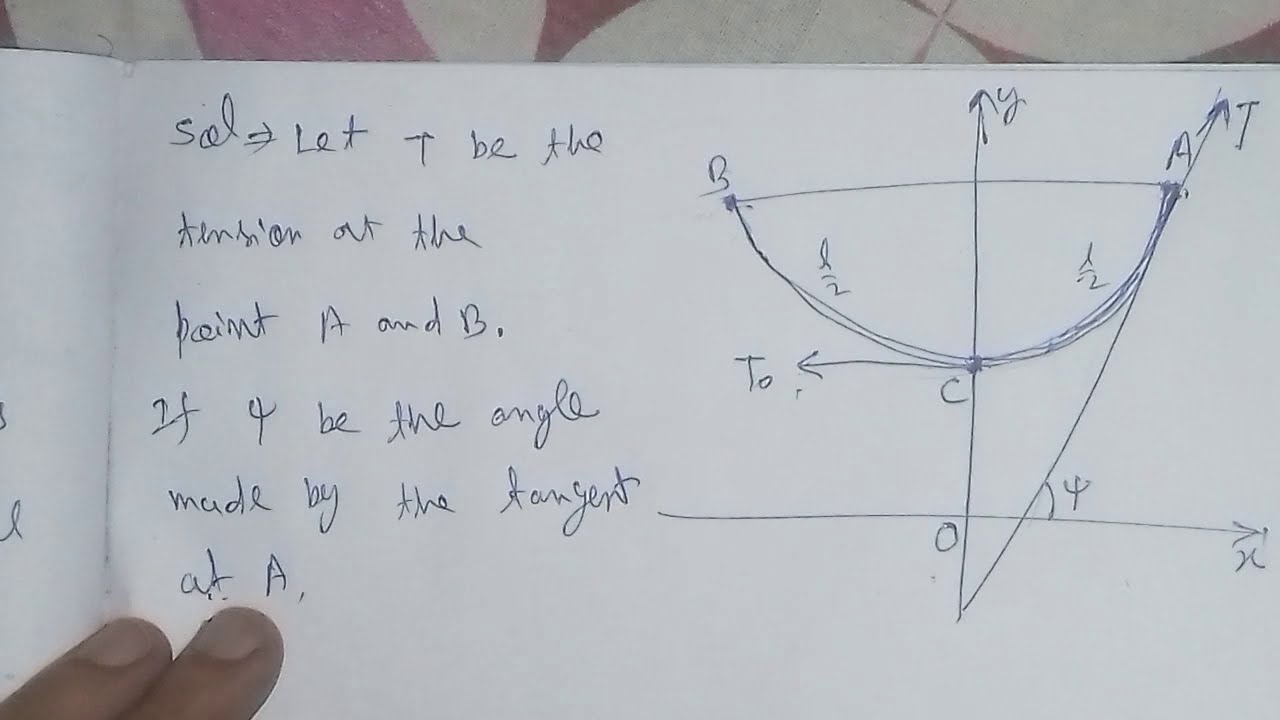 Sol ⇒ Let T be the
tension at the
point A and B.
If ψ be the angle
made by the tangent
at A.
y
A
T
B
l/2
l/2
T₀
C
ψ
O
x